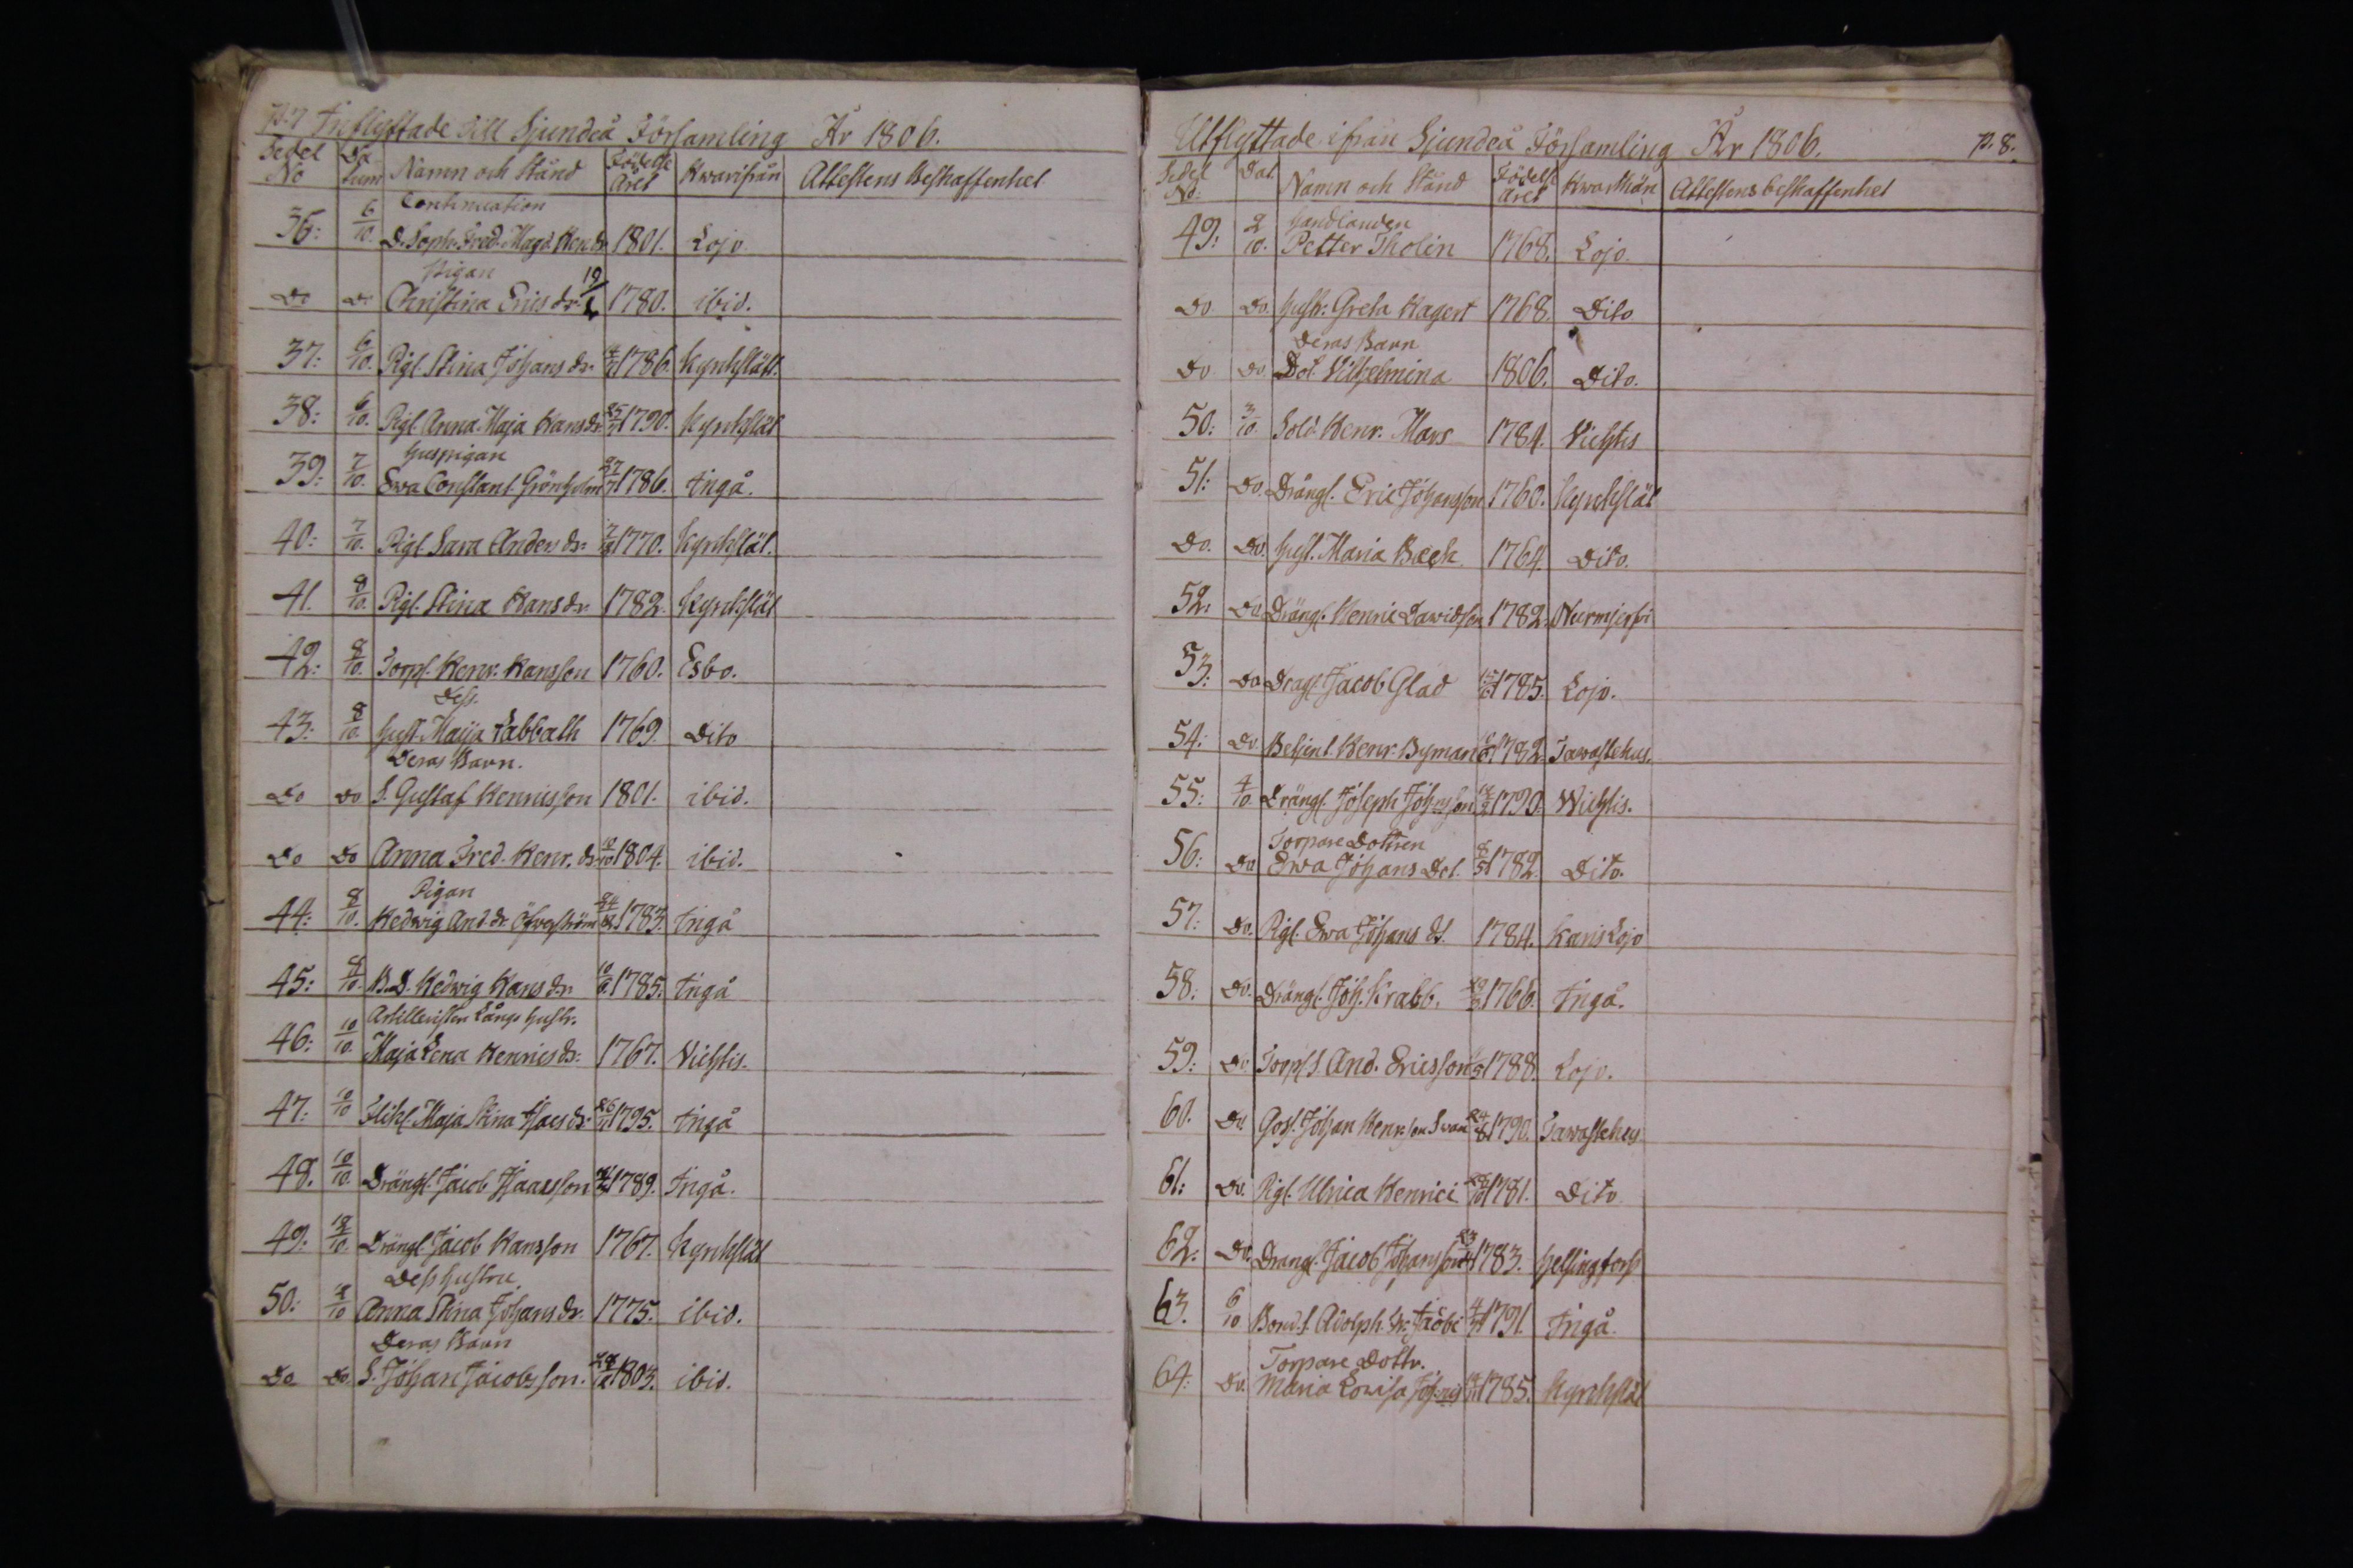 p.7 Inflyttade till Sjundeå Församling År 1806.
Sedel No Datum Namn och Stånd Födelse Året Hwarifrån Attestens Beskaffenhet
Continuation
36: 6/10. D. Soph. Fred. Magd. Hen.dr 1801. Lojo
Pigan
Do Do Christina Erics dr 1780. ibid.
37: 6/10. Pigl. Stina Johans dr 1786. Kyrkslätt.
38: 6/10. Pigl. Anna Maja Hansdr 25/7 1790. Kyrkslät
Huspigan
39: 7/10. Ewa Constant. Grönholm 1786. Ingå.
40: 7/10. Pigl. Sara Anders dr 1770. Kyrkslät.
41. 8/10. Pigl. Stina Hansdr 1782. Kyrkslät
42: 8/10. Torp. Henr. Hansson 1760. Esbo.
Dess
43: 8/10. Hust. Maija Labbath 1769. Dito
Deras Barn.
Do Do S. Gustaf Henricsson 1801. ibid.
Do Do Anna Fred. Henr. dr 1804. ibid.
Pigan
44: 8/10. Hedwig And.dr Öfverström 1783. Ingå
45: 8/10. B.D. Hedwig Hans dr 1785. Ingå
Artilleristen Långs hustr.
46: 10/10. Maja Lena Henrics dr 1767. Vichtis.
47: 10/10 Flick. Maja Stina Isacs dr 1795. Ingå
48. 10/10. Drängl. Jacob Isaacsson 1789. Ingå.
49: 18/10. Drängl. Jacob Hansson 1767. Kyrkslät
Dess hustru
50: 18/10 Anna Stina Johans dr 1775. ibid.
Deras Barn
Do Do S. Johan Jacobsson. 1803. ibid.
Utflyttade ifrån Sjundeå Församling År 1806. p. 8.
Sedel No. Dat. Namn och Stånd Födelse Året Hwarthän Attestens beskaffenhet
Handlanden
49: 2/10. Petter Tholin 1768. Lojo.
Do Do. Hustr. Greta Hagert 1768. Dito
Deras Barn
Do Do. Dot. Vilhelmina 1806. Dito.
50: 3/10. Sold. Henr. Mars 1784. Vichtis
51: Do. Drängl. Eric Johansson 1760. Kyrkslät
Do. Do. Hust. Maria Beck 1764. Dito.
52: Do Drängl. Henric Dawidsson 1782. Nurmijerfvi
53: Do Drägl. Jacob Glad 1785. Lojo.
54: Do. Betjent. Henr. Byman 1782. Tawastehus.
55: 4/10. Drängl. Joseph Johnsson 1790. Wichtis.
Torpare Dottren
56: Do Ewa Johans Dot. 8/5 1782. Dito.
57: Do. Pigl. Ewa Johans dt. 1784. KarisLojo
58: Do. Drängl. Joh. Krabb. 1766. Ingå.
59: Do Torp.S. And. Ericsson 1788. Lojo.
60. Do Goss. Johan Henr.son Swan 24/8 1790. Tawastehus
61: Do. Pigl. Ulrica Henrici 1781. Dito
62: Do. Drängl. Jacob Johansson 1783. Helsingfors
63. 6/10 Bond.S. Adolph Fr. Jacobi 1791. Ingå.
Torpare Dottr.
64: Do. Maria Lovisa Johans 1785. Kyrkslät